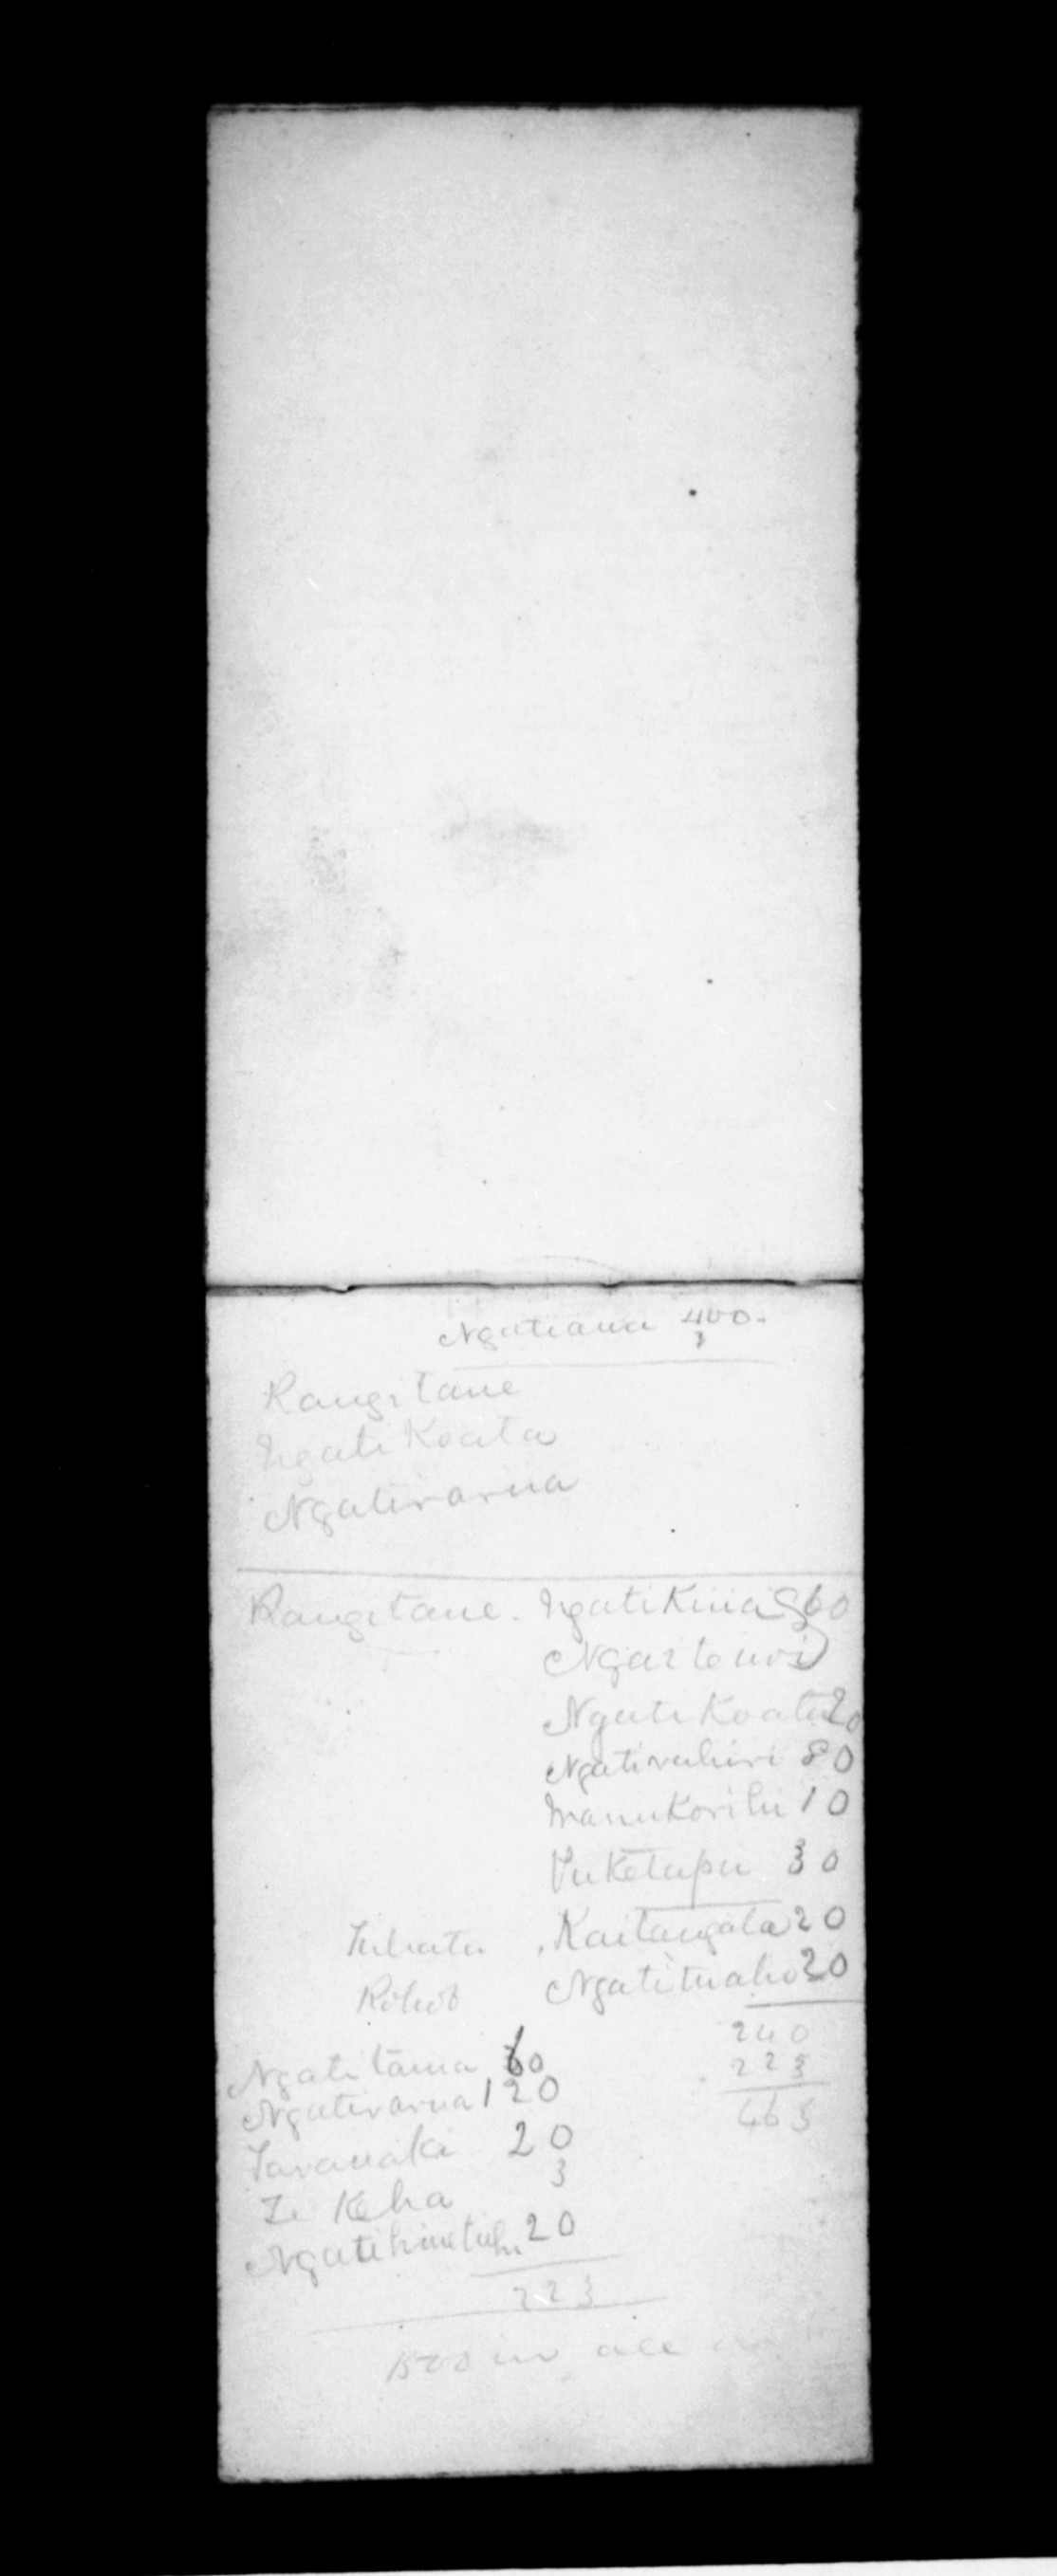 Ngatiawa 400.
3
Rangitane
Ngati Koata
Ngatirarua
Rangitane. Ngati Kuia 60
Ngaiteuri
Ngati Koata 20
Ngatirahiri 80
Manukorihi 10
Puketapu 30
Kaitangata 20
Ngatituaho 20
240
223
463
Ngatitama 60
Ngatirarua 120
Taranaki 20
Te Keha 3
Ngatihinetuhi 20
223
1500 in all